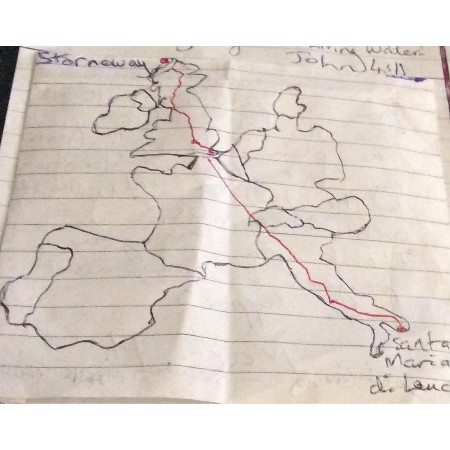 Living Water:
John 4:11
Stornoway
Santa
Maria
di Leuc